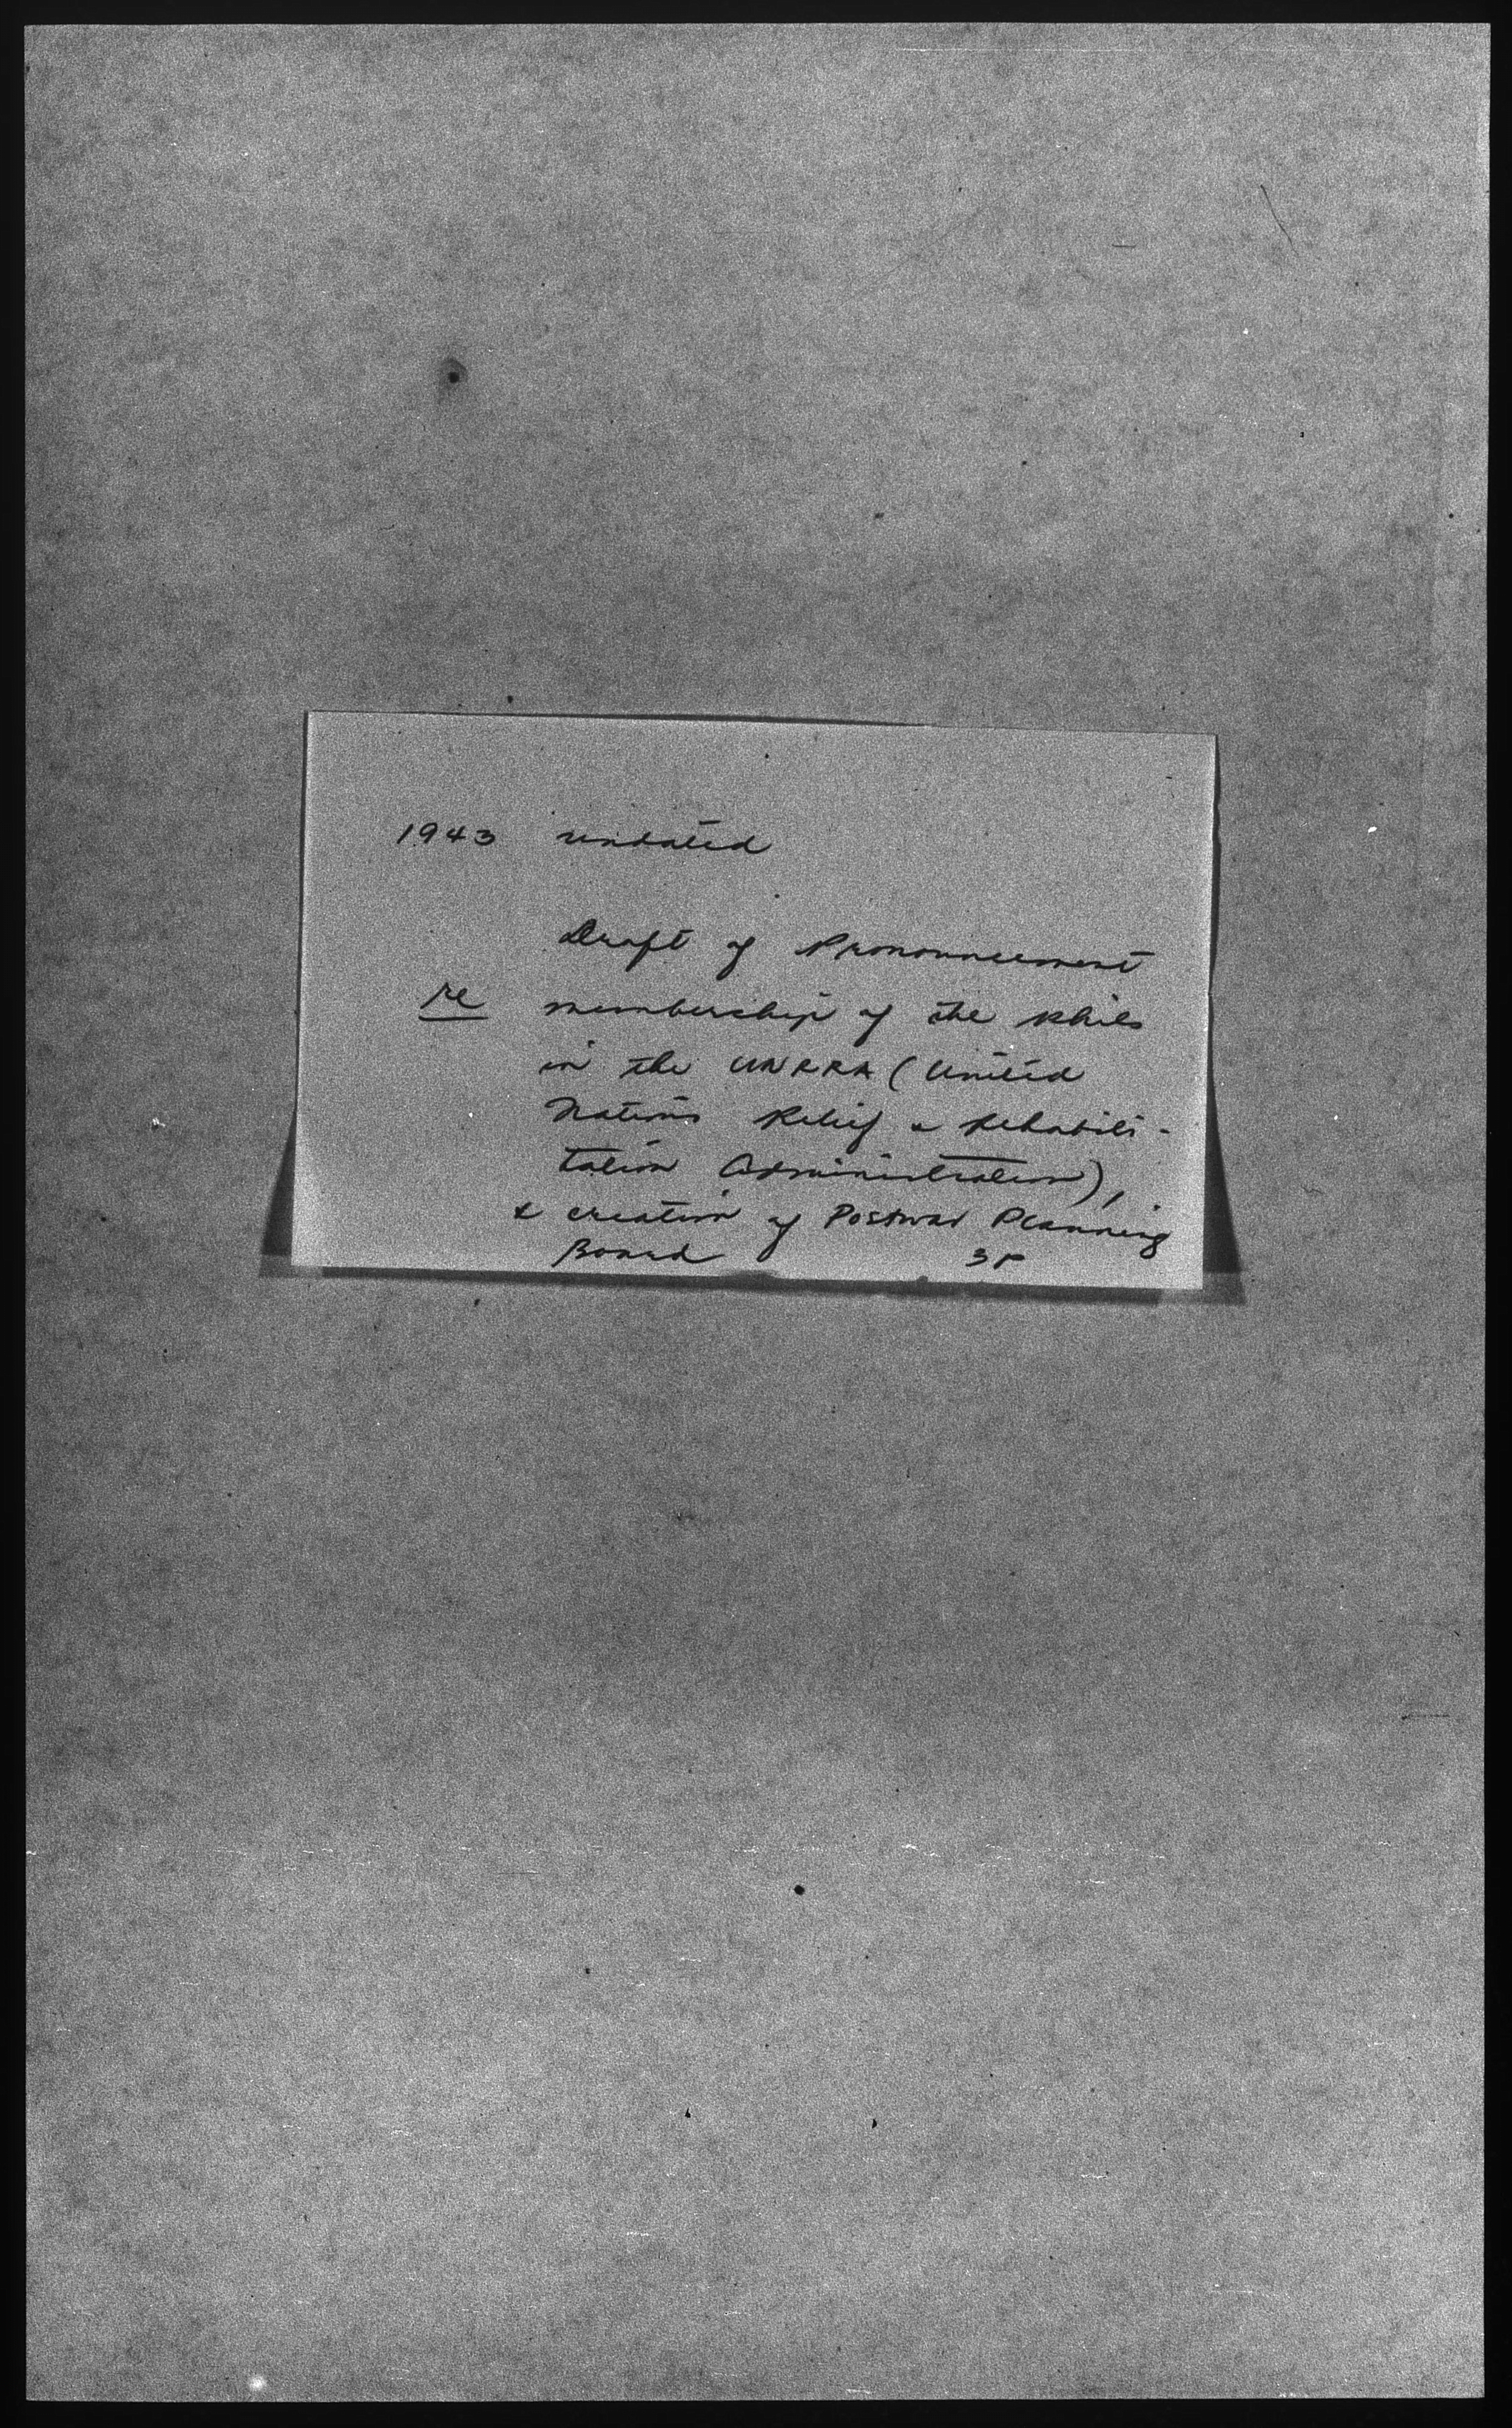 1943 undated
Draft of Pronouncement
re membership of the Phils
in the UNRRA (United
Nations Relief & Rehabili-
tation Administration),
& creation of Postwar Planning
Board 3p